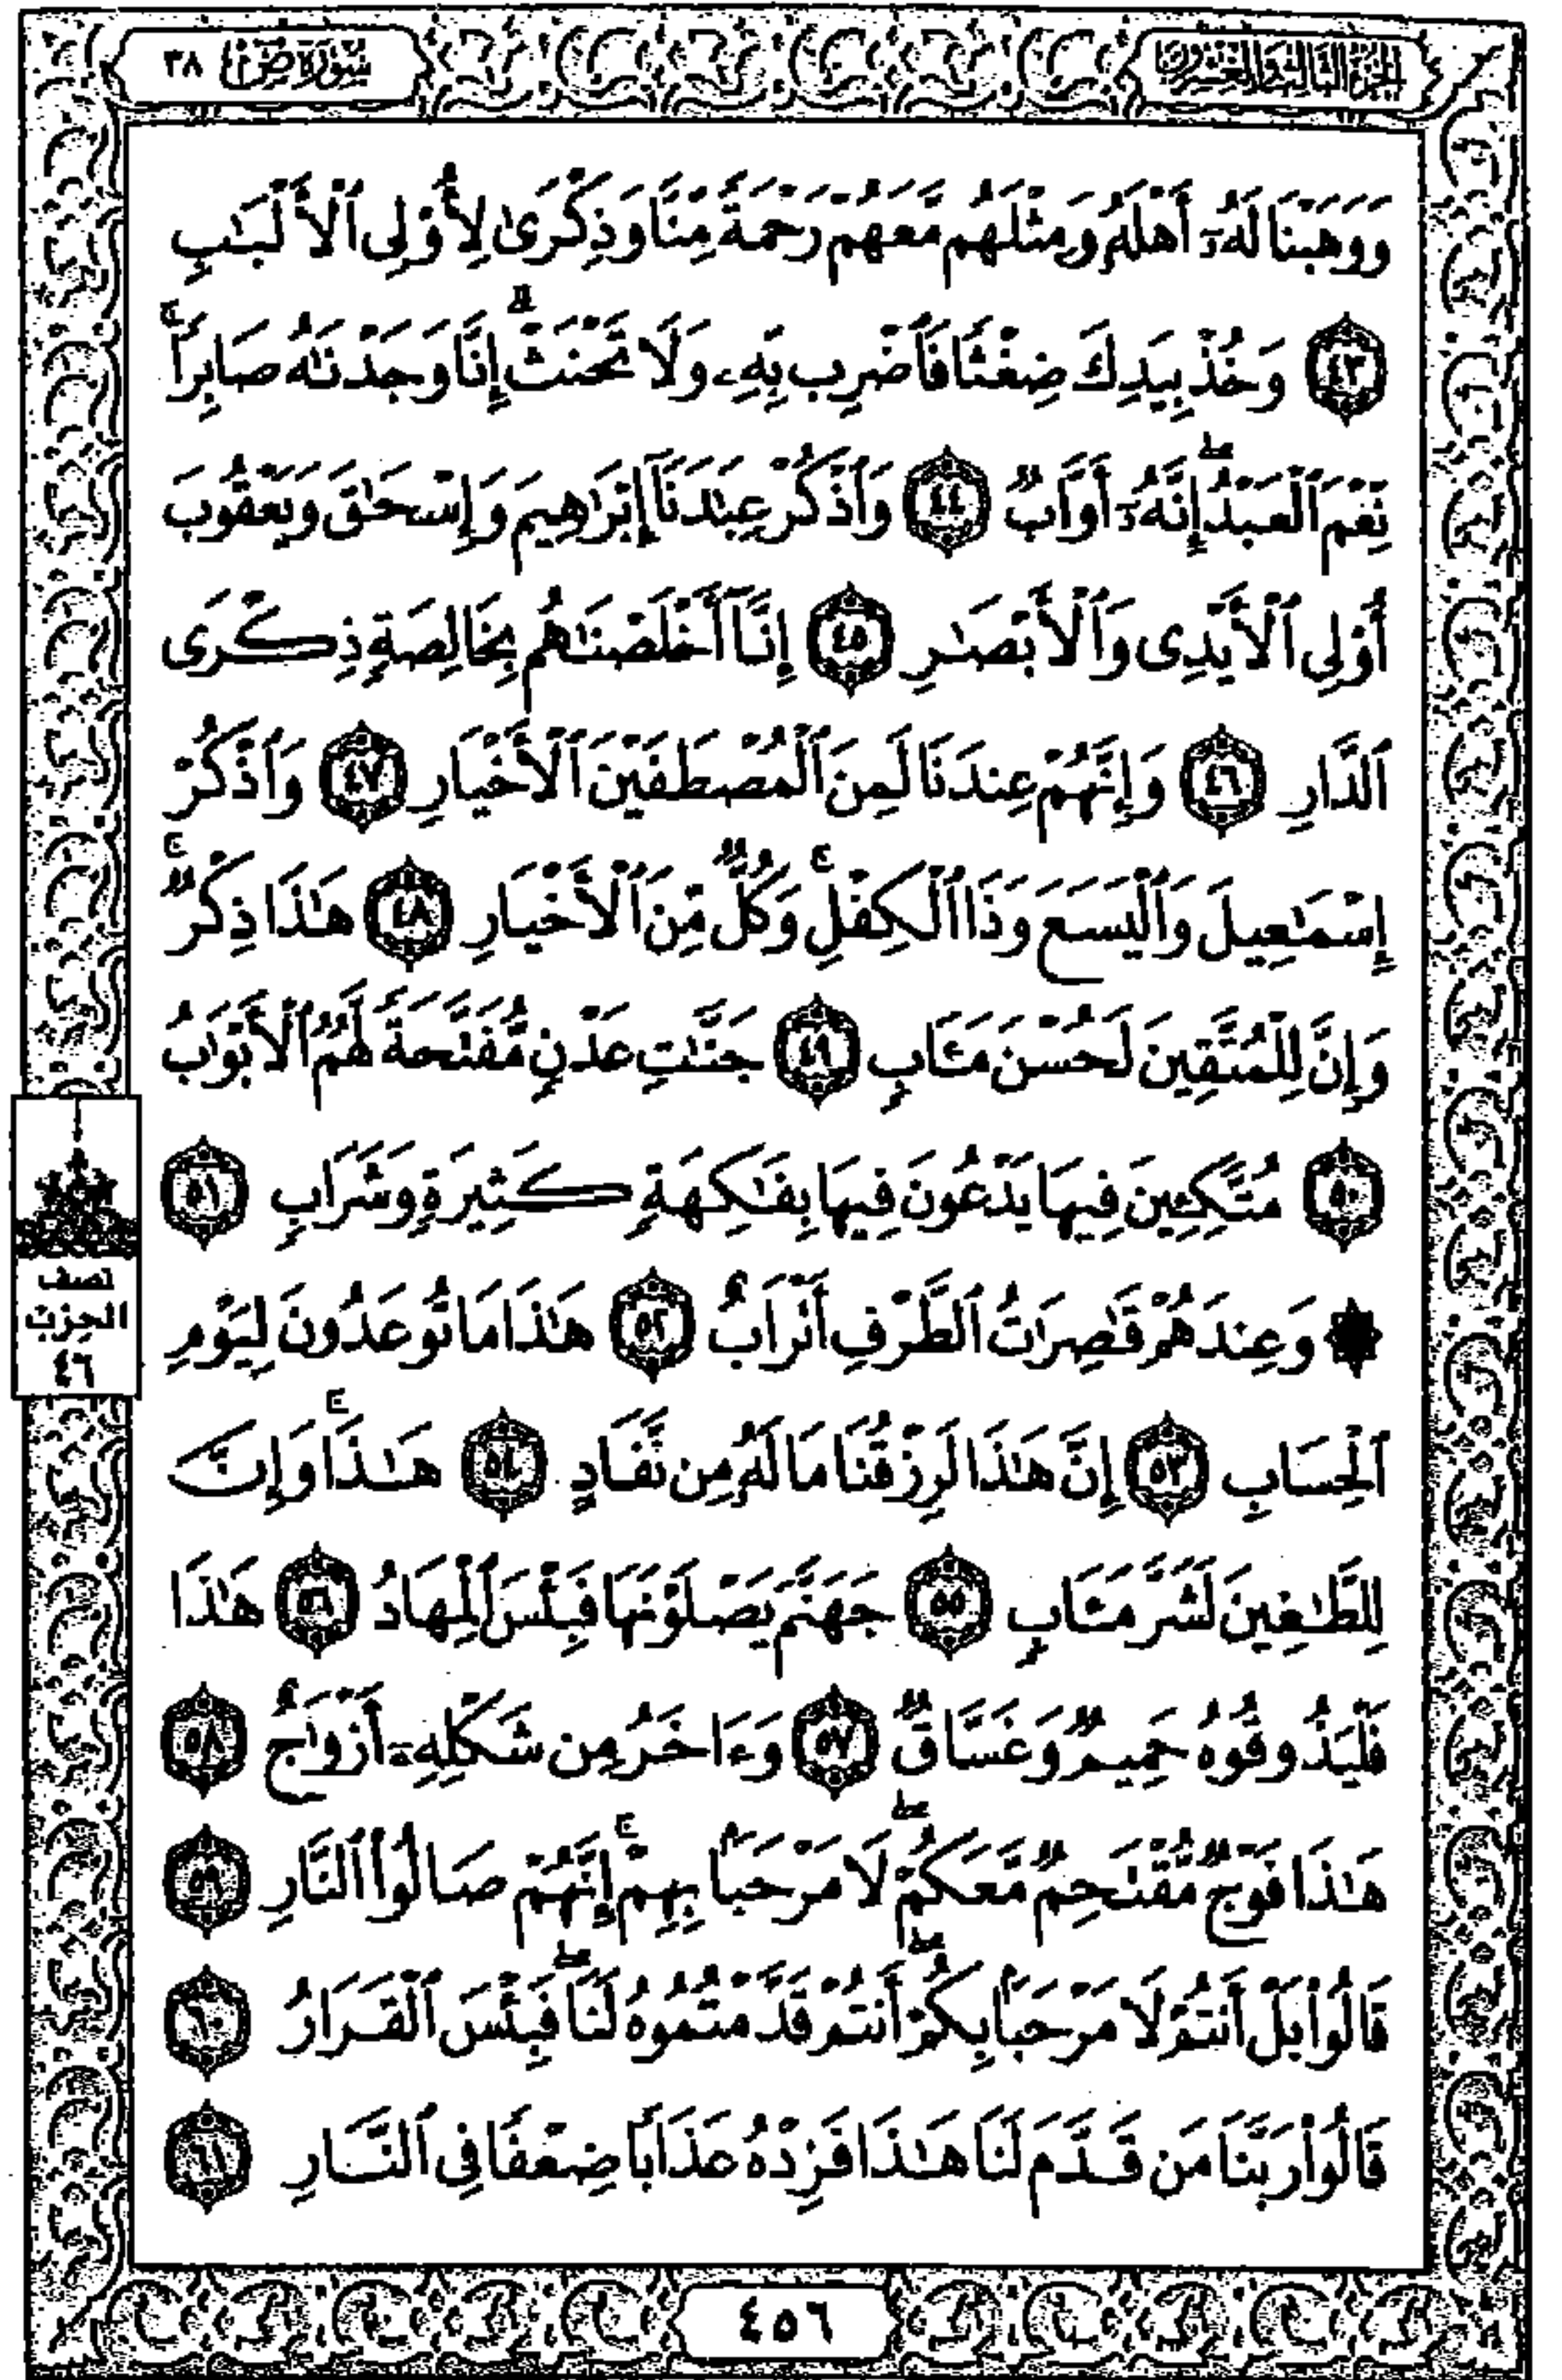 الجزء الثالث والعشرون
سورة ص ٣٨
وَوَهَبْنَا لَهُۥٓ أَهْلَهُۥ وَمِثْلَهُم مَّعَهُمْ رَحْمَةً مِّنَّا وَذِكْرَىٰ لِأُو۟لِى ٱلْأَلْبَـٰبِ
٤٣ وَخُذْ بِيَدِكَ ضِغْثًا فَٱضْرِب بِّهِۦ وَلَا تَحْنَثْ ۗ إِنَّا وَجَدْنَـٰهُ صَابِرًا ۚ
نِّعْمَ ٱلْعَبْدُ ۖ إِنَّهُۥٓ أَوَّابٌ ٤٤ وَٱذْكُرْ عِبَـٰدَنَآ إِبْرَٰهِيمَ وَإِسْحَـٰقَ وَيَعْقُوبَ
أُو۟لِى ٱلْأَيْدِى وَٱلْأَبْصَـٰرِ ٤٥ إِنَّآ أَخْلَصْنَـٰهُم بِخَالِصَةٍ ذِكْرَى
ٱلدَّارِ ٤٦ وَإِنَّهُمْ عِندَنَا لَمِنَ ٱلْمُصْطَفَيْنَ ٱلْأَخْيَارِ ٤٧ وَٱذْكُرْ
إِسْمَـٰعِيلَ وَٱلْيَسَعَ وَذَا ٱلْكِفْلِ ۚ وَكُلٌّ مِّنَ ٱلْأَخْيَارِ ٤٨ هَـٰذَا ذِكْرٌ ۚ
وَإِنَّ لِلْمُتَّقِينَ لَحُسْنَ مَـَٔابٍ ٤٩ جَنَّـٰتِ عَدْنٍ مُّفَتَّحَةً لَّهُمُ ٱلْأَبْوَٰبُ
٥٠ مُتَّكِـِٔينَ فِيهَا يَدْعُونَ فِيهَا بِفَـٰكِهَةٍ كَثِيرَةٍ وَشَرَابٍ ٥١
۞ وَعِندَهُمْ قَـٰصِرَٰتُ ٱلطَّرْفِ أَتْرَابٌ ٥٢ هَـٰذَا مَا تُوعَدُونَ لِيَوْمِ
ٱلْحِسَابِ ٥٣ إِنَّ هَـٰذَا لَرِزْقُنَا مَا لَهُۥ مِن نَّفَادٍ ٥٤ هَـٰذَا ۚ وَإِنَّ
لِلطَّـٰغِينَ لَشَرَّ مَـَٔابٍ ٥٥ جَهَنَّمَ يَصْلَوْنَهَا فَبِئْسَ ٱلْمِهَادُ ٥٦ هَـٰذَا
فَلْيَذُوقُوهُ حَمِيمٌ وَغَسَّاقٌ ٥٧ وَءَاخَرُ مِن شَكْلِهِۦٓ أَزْوَٰجٌ ٥٨
هَـٰذَا فَوْجٌ مُّقْتَحِمٌ مَّعَكُمْ ۖ لَا مَرْحَبًۢا بِهِمْ ۚ إِنَّهُمْ صَالُوا۟ ٱلنَّارِ ٥٩
قَالُوا۟ بَلْ أَنتُمْ لَا مَرْحَبًۢا بِكُمْ ۖ أَنتُمْ قَدَّمْتُمُوهُ لَنَا ۖ فَبِئْسَ ٱلْقَرَارُ ٦٠
قَالُوا۟ رَبَّنَا مَن قَدَّمَ لَنَا هَـٰذَا فَزِدْهُ عَذَابًا ضِعْفًا فِى ٱلنَّارِ ٦١
نصف
الحزب
٤٦
٤٥٦